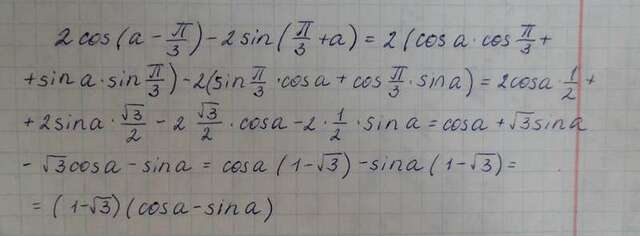 2 cos(a - π/3) - 2 sin(π/3 + a) = 2 (cos a · cos π/3 +
+ sin a · sin π/3) - 2(sin π/3 · cos a + cos π/3 · sin a) = 2cosa · 1/2 +
+ 2 sin a · √3/2 - 2 √3/2 · cos a - 2 · 1/2 · sin a = cos a + √3 sin a
- √3 cos a - sin a = cos a (1-√3) - sin a (1-√3) =
= (1-√3)(cos a - sin a)